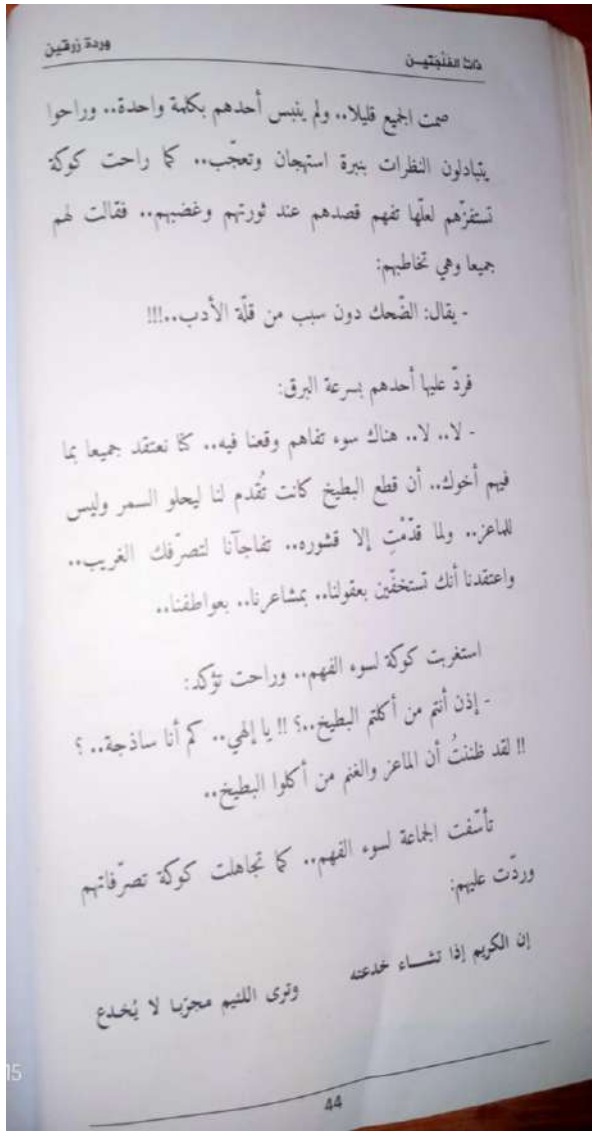 ذات الفلجتيــن وردة زرقين
صمت الجميع قليلا.. ولم ينبس أحدهم بكلمة واحدة.. وراحوا
يتبادلون النظرات بنبرة استهجان وتعجّب.. كما راحت كوكة
تستفزّهم لعلّها تفهم قصدهم عند ثورتهم وغضبهم.. فقالت لهم
جميعا وهي تخاطبهم:
- يقال: الضّحك دون سبب من قلّة الأدب..!!!
فردّ عليها أحدهم بسرعة البرق:
- لا.. لا.. هناك سوء تفاهم وقعنا فيه.. كنا نعتقد جميعا بما
فيهم أخوك.. أن قطع البطيخ كانت تُقدم لنا ليحلو السمر وليس
للماعز.. ولما قدّمْتِ إلا قشوره.. تفاجآنا لتصرّفك الغريب..
واعتقدنا أنك تستخفّين بعقولنا.. بمشاعرنا.. بعواطفنا..
استغربت كوكة لسوء الفهم.. وراحت تؤكد:
- إذن أنتم من أكلتم البطيخ..؟ !! يا إلهي.. كم أنا ساذجة.. ؟
!! لقد ظننتُ أن الماعز والغنم من أكلوا البطيخ..
تأسّفت الجماعة لسوء الفهم.. كما تجاهلت كوكة تصرّفاتهم
وردّت عليهم:
إن الكريم إذا تشــاء خدعته وترى اللئيم مجرّبا لا يُخدع
44
15